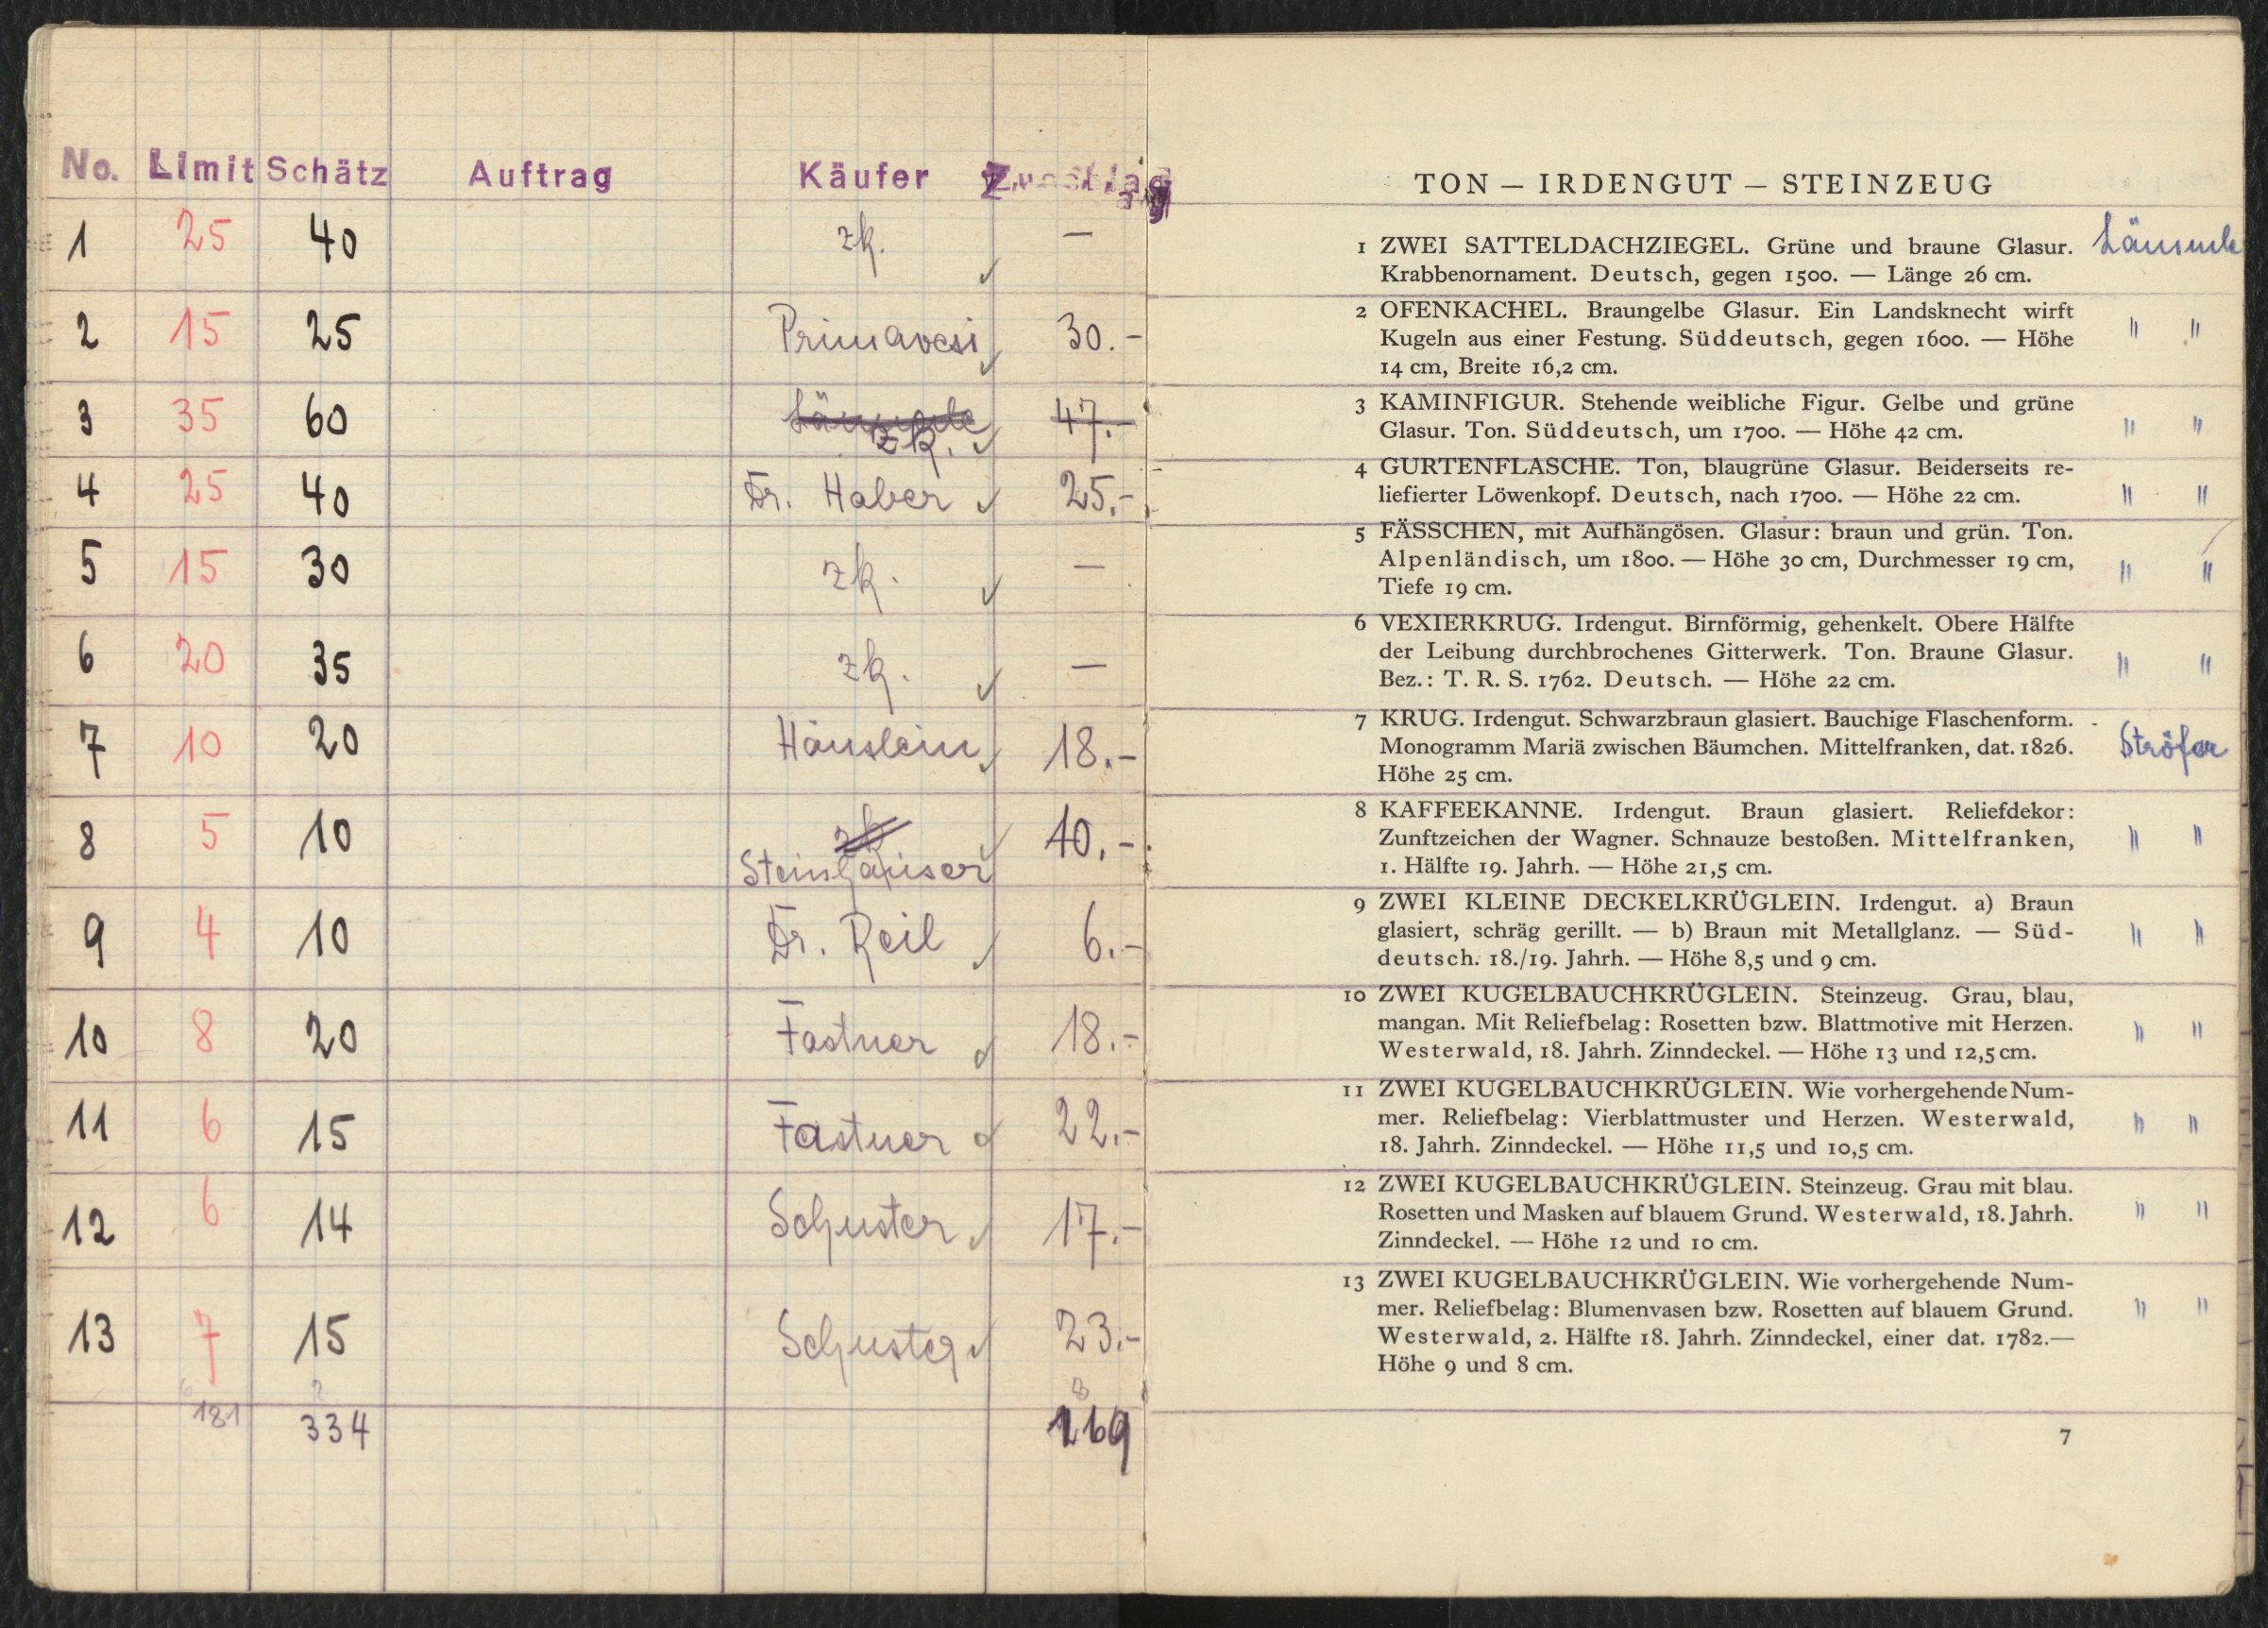 No. Limit Schätz Auftrag Käufer Zuschlag
1 25 40 zk. —
2 15 25 Primavesi 30.-
3 35 60 zk. 47.-
4 25 40 Dr. Haber 25.-
5 15 30 zk. —
6 20 35 zk. —
7 10 20 Häuslein 18.-
8 5 10 zk 40.-
Steinhäuser
9 4 10 Dr. Reil 6.-
10 8 20 Fastner 18.-
11 6 15 Fastner 22.-
12 6 14 Schuster 17.-
13 7 15 Schuster 23.-
181 334
TON – IRDENGUT – STEINZEUG
1 ZWEI SATTELDACHZIEGEL. Grüne und braune Glasur.
Krabbenornament. Deutsch, gegen 1500. — Länge 26 cm.
2 OFENKACHEL. Braungelbe Glasur. Ein Landsknecht wirft
Kugeln aus einer Festung. Süddeutsch, gegen 1600. — Höhe " "
14 cm, Breite 16,2 cm.
3 KAMINFIGUR. Stehende weibliche Figur. Gelbe und grüne
Glasur. Ton. Süddeutsch, um 1700. — Höhe 42 cm. " "
4 GURTENFLASCHE. Ton, blaugrüne Glasur. Beiderseits re-
liefierter Löwenkopf. Deutsch, nach 1700. — Höhe 22 cm. " "
5 FÄSSCHEN, mit Aufhängösen. Glasur: braun und grün. Ton.
Alpenländisch, um 1800. — Höhe 30 cm, Durchmesser 19 cm, " "
Tiefe 19 cm.
6 VEXIERKRUG. Irdengut. Birnförmig, gehenkelt. Obere Hälfte
der Leibung durchbrochenes Gitterwerk. Ton. Braune Glasur. " "
Bez.: T. R. S. 1762. Deutsch. — Höhe 22 cm.
7 KRUG. Irdengut. Schwarzbraun glasiert. Bauchige Flaschenform.
Monogramm Mariä zwischen Bäumchen. Mittelfranken, dat. 1826. Ströfer
Höhe 25 cm.
8 KAFFEEKANNE. Irdengut. Braun glasiert. Reliefdekor:
Zunftzeichen der Wagner. Schnauze bestoßen. Mittelfranken, " "
1. Hälfte 19. Jahrh. — Höhe 21,5 cm.
9 ZWEI KLEINE DECKELKRÜGLEIN. Irdengut. a) Braun
glasiert, schräg gerillt. — b) Braun mit Metallglanz. — Süd- " "
deutsch. 18./19. Jahrh. — Höhe 8,5 und 9 cm.
10 ZWEI KUGELBAUCHKRÜGLEIN. Steinzeug. Grau, blau,
mangan. Mit Reliefbelag: Rosetten bzw. Blattmotive mit Herzen. " "
Westerwald, 18. Jahrh. Zinndeckel. — Höhe 13 und 12,5 cm.
11 ZWEI KUGELBAUCHKRÜGLEIN. Wie vorhergehende Num-
mer. Reliefbelag: Vierblattmuster und Herzen. Westerwald, " "
18. Jahrh. Zinndeckel. — Höhe 11,5 und 10,5 cm.
12 ZWEI KUGELBAUCHKRÜGLEIN. Steinzeug. Grau mit blau.
Rosetten und Masken auf blauem Grund. Westerwald, 18. Jahrh. " "
Zinndeckel. — Höhe 12 und 10 cm.
13 ZWEI KUGELBAUCHKRÜGLEIN. Wie vorhergehende Num-
mer. Reliefbelag: Blumenvasen bzw. Rosetten auf blauem Grund. " "
Westerwald, 2. Hälfte 18. Jahrh. Zinndeckel, einer dat. 1782.—
Höhe 9 und 8 cm.
7